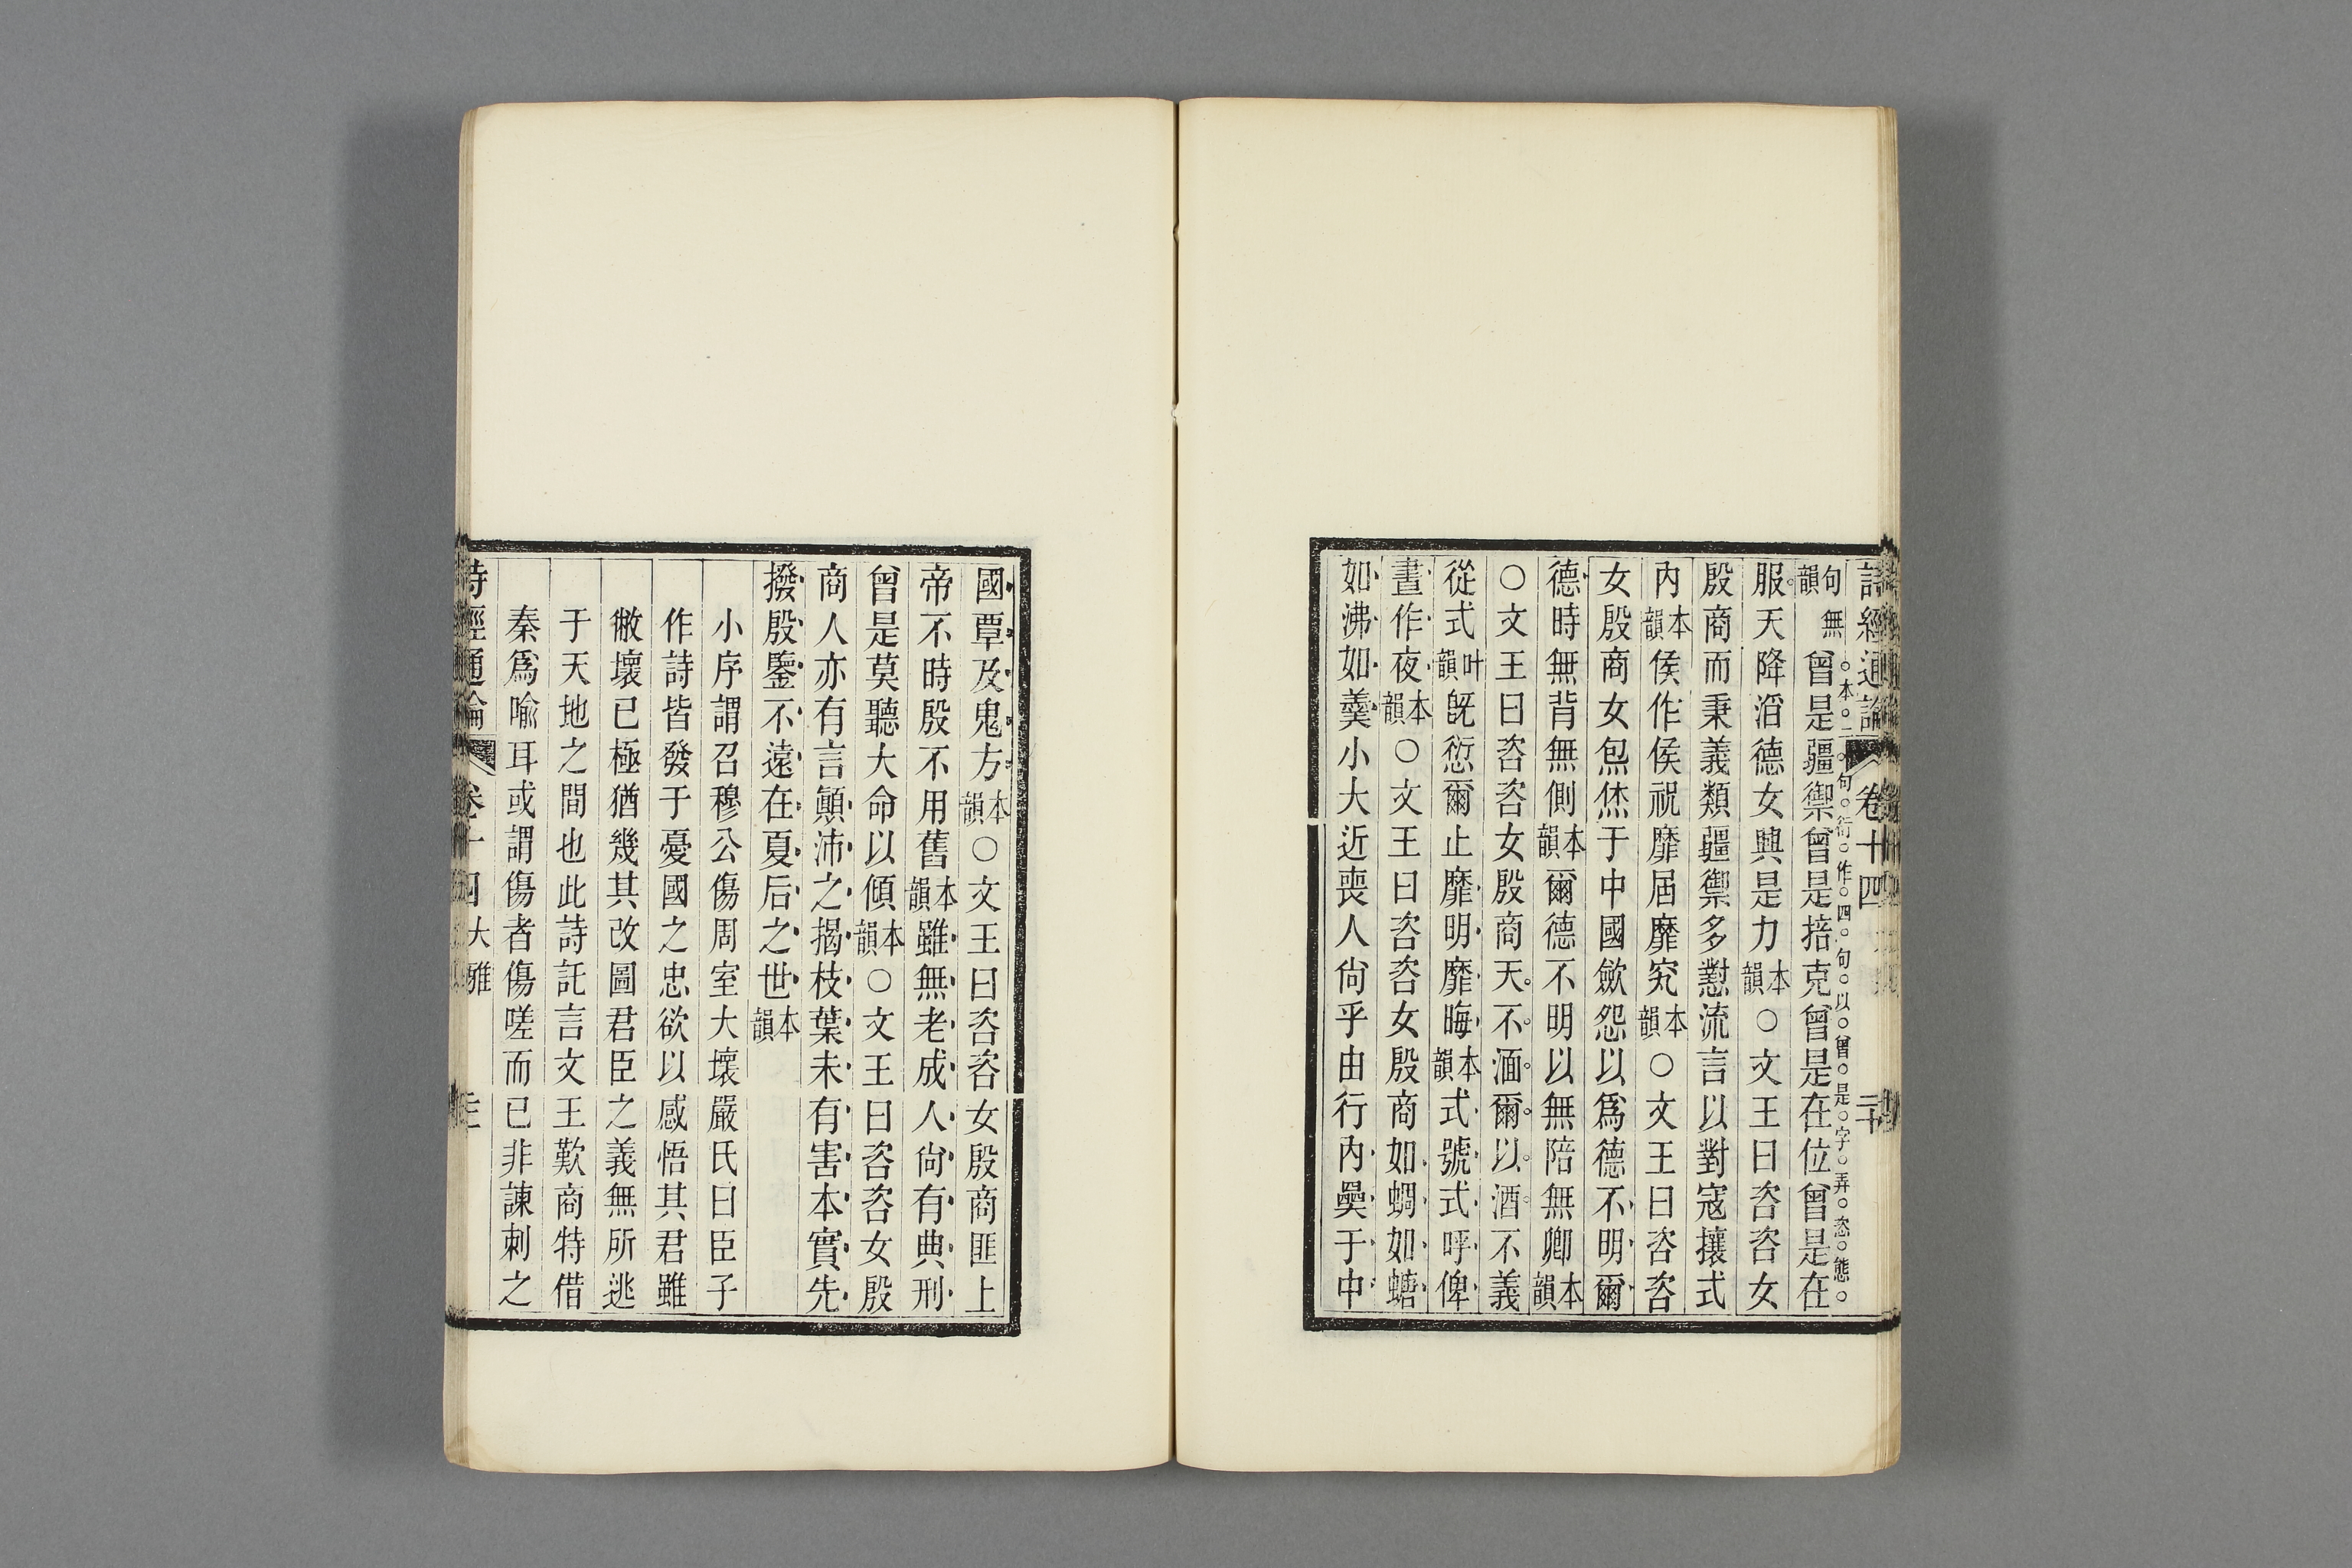 詩經通論 卷十四 二十
本二句衍作四句以曾是字弄恣態
句無韻曾是疆禦曾是掊克曾是在位曾是在
服天降滔德女興是力本韻○文王曰咨咨女
殷商而秉義類疆禦多懟流言以對寇攘式
內本韻侯作侯祝靡屆靡究本韻○文王曰咨咨
女殷商女炰烋于中國歛怨以爲德不明爾
德時無背無側本韻爾德不明以無陪無卿本韻
○文王曰咨咨女殷商天不湎爾以酒不義
從式叶韻旣愆爾止靡明靡晦本韻式號式呼俾
晝作夜本韻○文王曰咨咨女殷商如蜩如螗
如沸如羹小大近喪人尙乎由行內奰于中
國覃及鬼方本韻○文王曰咨咨女殷商匪上
帝不時殷不用舊本韻雖無老成人尙有典刑
曾是莫聽大命以傾本韻○文王曰咨咨女殷
商人亦有言顚沛之揭枝葉未有害本實先
撥殷鑒不遠在夏后之世本韻
小序謂召穆公傷周室大壞嚴氏曰臣子
作詩皆發于憂國之忠欲以感悟其君雖
敝壞已極猶幾其改圖君臣之義無所逃
于天地之間也此詩託言文王歎商特借
秦爲喻耳或謂傷者傷嗟而已非諫刺之
詩經通論 卷十四 大雅